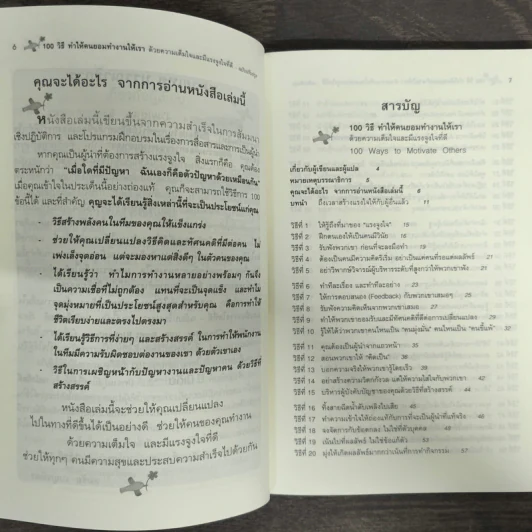 6 100 วิธี ทำให้คนยอมทำงานให้เรา ด้วยความเต็มใจและมีแรงจูงใจที่ดี
คุณจะได้อะไร จากการอ่านหนังสือเล่มนี้
หนังสือเล่มนี้เขียนขึ้นจากความสำเร็จในการสัมมนา
เชิงปฏิบัติการ และโปรแกรมฝึกอบรมในเรื่องการสื่อสารและการเป็นผู้นำ
หากคุณเป็นผู้นำที่ต้องการสร้างแรงจูงใจ สิ่งแรกก็คือ คุณต้อง
ตระหนักว่า "เมื่อใดที่มีปัญหา ฉันเองก็คือตัวปัญหาด้วยเหมือนกัน"
เมื่อคุณเข้าใจในประเด็นนี้อย่างถ่องแท้ คุณก็จะสามารถใช้วิธีการ 100
ข้อนี้ได้ และที่สำคัญ คุณจะได้เรียนรู้สิ่งเหล่านี้ที่จะเป็นประโยชน์แก่คุณ
- วิธีสร้างพลังคนในทีมของคุณให้แข็งแกร่ง
- ช่วยให้คุณเปลี่ยนแปลงวิธีคิดและทัศนคติที่มีต่อคน ไม่
เพ่งเล็งจุดอ่อน แต่จะมองหาแต่สิ่งดีๆ ในตัวคนของคุณ
- ได้เรียนรู้ว่า ทำไมการทำงานหลายอย่างพร้อมๆ กันจึง
เป็นความเชื่อที่ไม่ถูกต้อง แทนที่จะเป็นจุดแข็ง และทำไม
จุดมุ่งหมายที่เป็นประโยชน์สูงสุดสำหรับคุณ คือการทำให้
ชีวิตเรียบง่ายและตรงไปตรงมา
- ได้เรียนรู้วิธีการที่ง่ายๆ และสร้างสรรค์ ในการทำให้พนักงาน
ในทีมมีความรับผิดชอบต่องานของเขา ด้วยตัวเขาเอง
- วิธีในการเผชิญหน้ากับปัญหางานและปัญหาคน ด้วยวิธีที่
สร้างสรรค์
หนังสือเล่มนี้จะช่วยให้คุณเปลี่ยนแปลง
ไปในทางที่ดีขึ้นได้เป็นอย่างดี ช่วยให้คนของคุณทำงาน
ด้วยความเต็มใจ และมีแรงจูงใจที่ดี
ช่วยให้ทุกๆ คนมีความสุขและประสบความสำเร็จไปด้วยกัน
7
สารบัญ
100 วิธี ทำให้คนยอมทำงานให้เรา
ด้วยความเต็มใจและมีแรงจูงใจที่ดี
100 Ways to Motivate Others
เกี่ยวกับผู้เขียนและผู้แปล 4
หมายเหตุบรรณาธิการ 5
คุณจะได้อะไร จากการอ่านหนังสือเล่มนี้ 6
บทนำ ถึงเวลาสร้างแรงใจให้กับผู้อื่นแล้ว
วิธีที่ 1 ให้รู้ถึงที่มาของ "แรงจูงใจ"
วิธีที่ 2 ฝึกตนเองให้เป็นคนมีวินัย
วิธีที่ 3 รับฟังพวกเขา ก่อนที่จะลงมือทำ
วิธีที่ 4 ต้องเป็นคนมีความคิดริเริ่ม อย่าเป็นแต่คนที่รอแต่ผลลัพธ์ 21
วิธีที่ 5 อย่าวิพากษ์วิจารณ์ผู้บริหารระดับที่สูงกว่าให้พวกเขาฟัง
วิธีที่ 6 ทำทีละเรื่อง และทำทีละอย่าง
วิธีที่ 7 ให้การตอบสนอง (Feedback) กับพวกเขาเสมอๆ
วิธีที่ 8 รับฟังความคิดเห็นจากพวกเขาเสมอ
วิธีที่ 9 ทำให้พวกเขายอมรับและมีทัศนคติที่ดีต่อการเปลี่ยนแปลง
วิธีที่ 10 รู้ให้ได้ว่าพวกเขาคนไหนเป็น "คนมุ่งมั่น" คนไหนเป็น "คนขี้แพ้"
วิธีที่ 11 คุณต้องเป็นผู้นำจากแถวหน้า
วิธีที่ 12 สอนพวกเขาให้ "คิดเป็น"
วิธีที่ 13 บอกความจริงให้พวกเขารู้โดยเร็ว
วิธีที่ 14 อย่าสร้างความวิตกกังวล แต่ให้ความใส่ใจกับพวกเขา 42
วิธีที่ 15 บริหารผู้บังคับบัญชาของคุณด้วยวิธีที่สร้างสรรค์
วิธีที่ 16
วิธีที่ 17
วิธีที่ 18
วิธีที่ 19 เน้นไปที่ผลลัพธ์ ไม่ใช่ข้อแก้ตัว
วิธีที่ 20 มุ่งให้เกิดผลลัพธ์มากกว่าเน้นที่การทำกิจกรรม